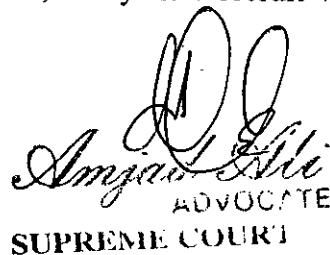 Amjad Ali
ADVOCATE
SUPREME COURT